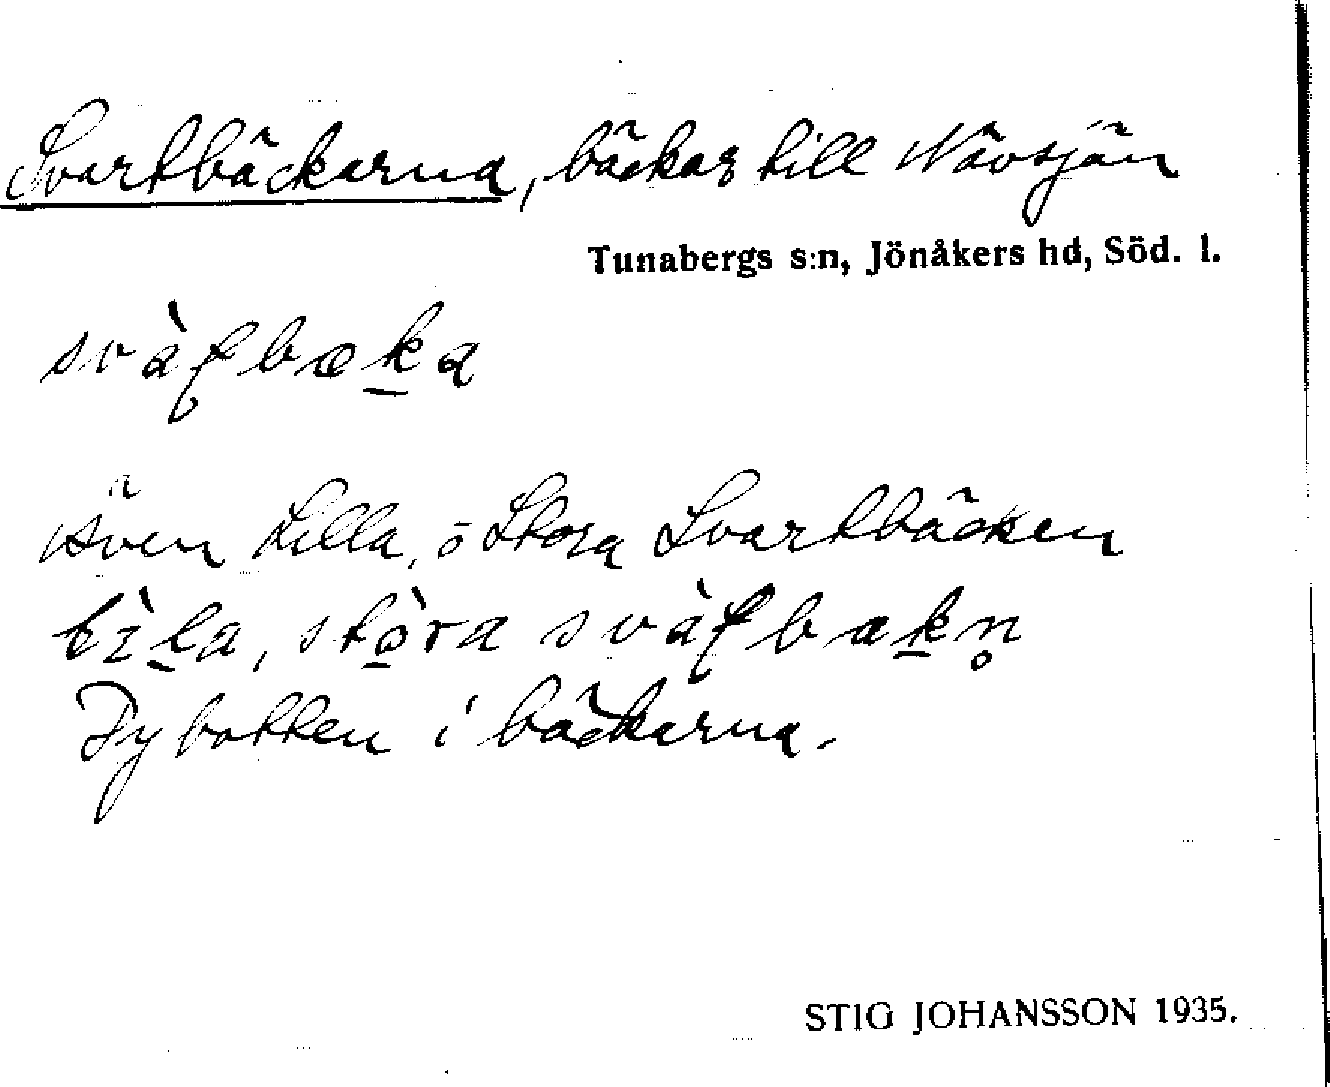 Svartbäckarna, bäckar till Nävsjön
Tunabergs s:n, Jönåkers hd, Söd. l.
även Lilla, o Stora Svartbäcken
Dybotten i bäckarna.
STIG JOHANSSON 1935.